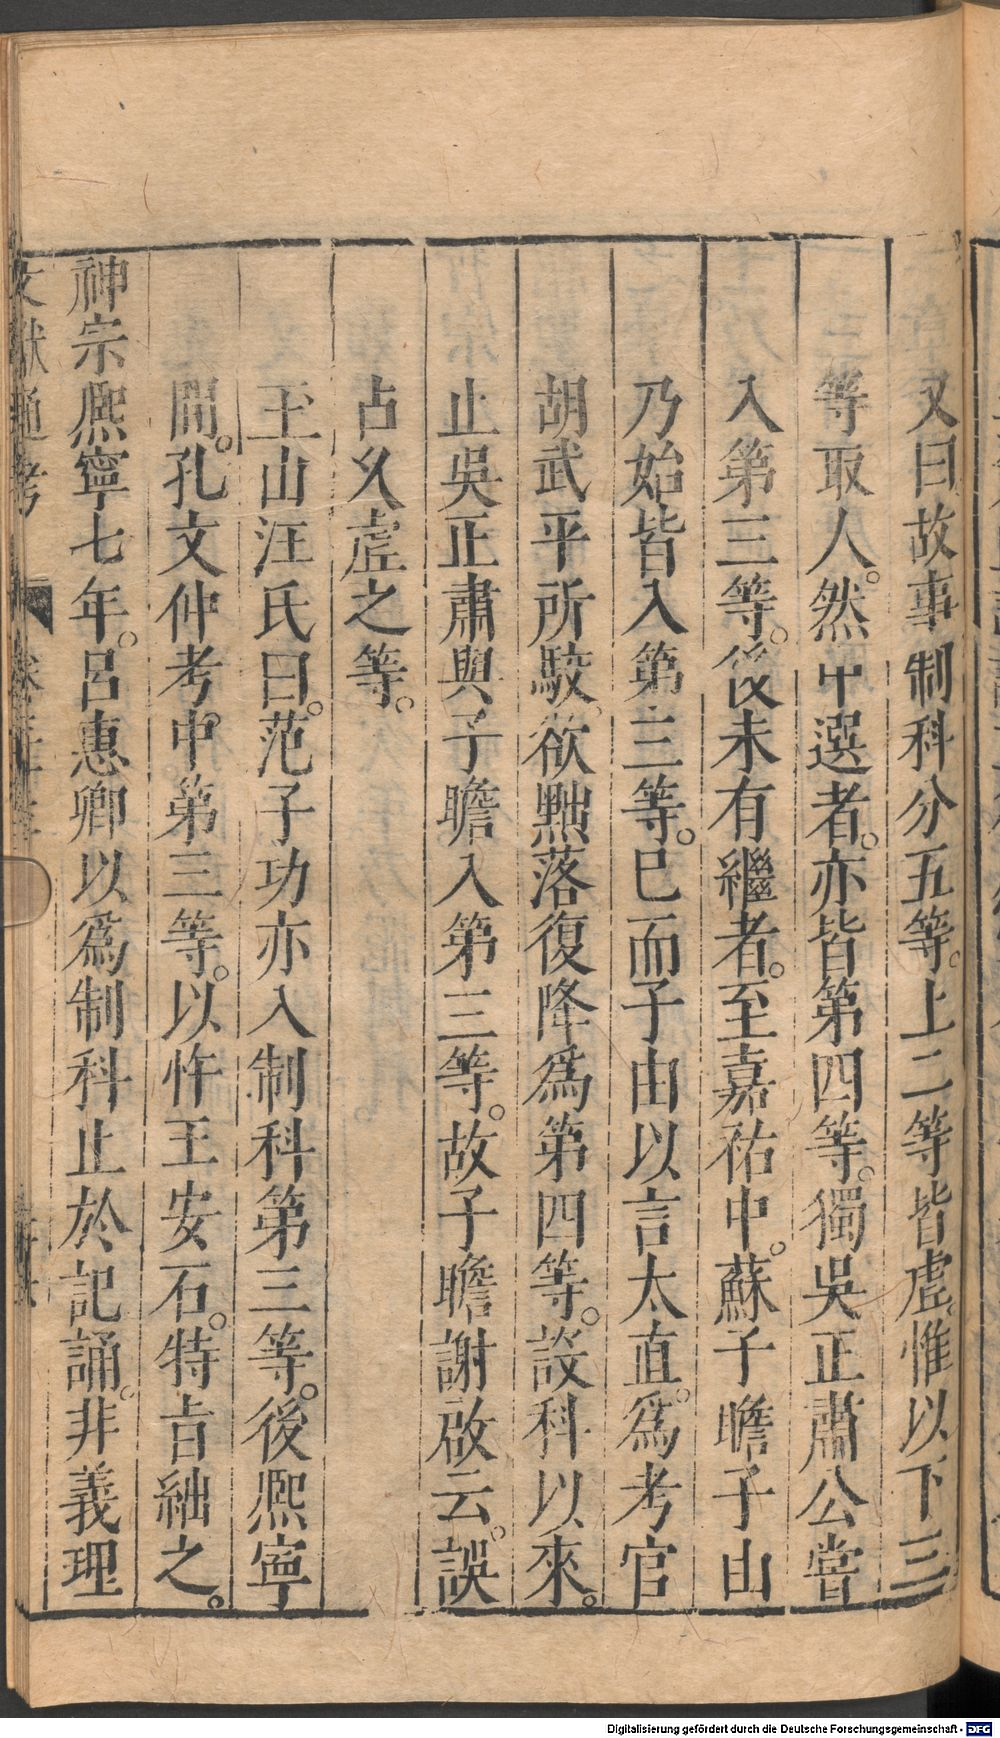 又曰故事制科分五等。上二等皆虛。惟以下三
等取人。然中選者。亦皆第四等。獨吳正肅公嘗
入第三等。後未有繼者。至嘉祐中。蘇子瞻子由
乃始皆入第三等。巳而子由以言太直。爲考官
胡武平所駮。欲黜落復降爲第四等。設科以來。
止吳正肅與子瞻入第三等。故子瞻謝啟云。誤
占乆虛之等。
王山汪氏曰。范子功亦入制科第三等。後熈寧
間。孔文仲考。中第三等。以忤王安石。特旨絀之。
神宗熈寧七年。呂惠卿以爲制科止於記誦。非義理
文獻通考
Digitalisierung gefördert durch die Deutsche Forschungsgemeinschaft - DFG